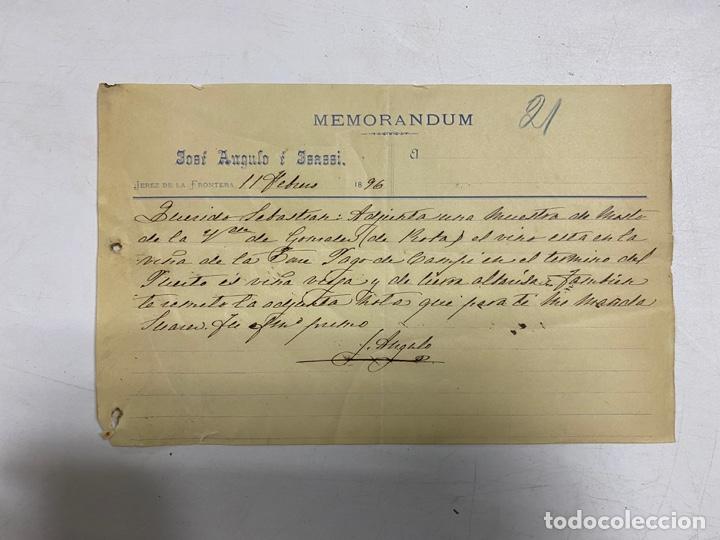 MEMORANDUM
21
José Angulo é Isassi.
Al
JEREZ DE LA FRONTERA 11 Febrero 1896
Querido Sebastian: Adjunta una muestra de Mosto
de la de Gonzalez (de Rota) el vino esta en la
viña de la Pago de Campi en el termino del
Puerto es viña vieja y de tierra albariza. Tambien
te remito la adjunta nota que para ti me manda
Suarez. Tu primo
J. Angulo
todocoleccion
todocoleccion.net